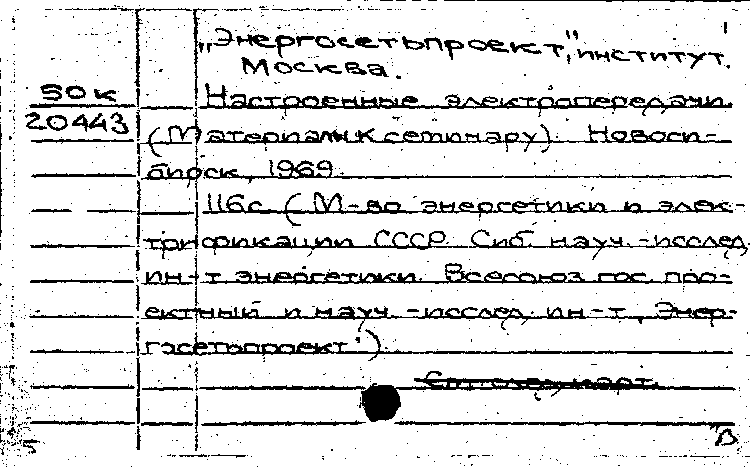 1
„Энергосетьпроект", институт.
Москва.
50к Настроенные электропередачи.
20443 (Материалы к семинару). Новоси-
бирск, 1969.
116с. (М-во энергетики и элек-
трификации СССР. Сиб. науч.-исслед.
ин-т энергетики. Всесоюз. гос. про-
ектный и науч.-исслед. ин-т „Энер-
госетьпроект")
См. след. карт.
5 В